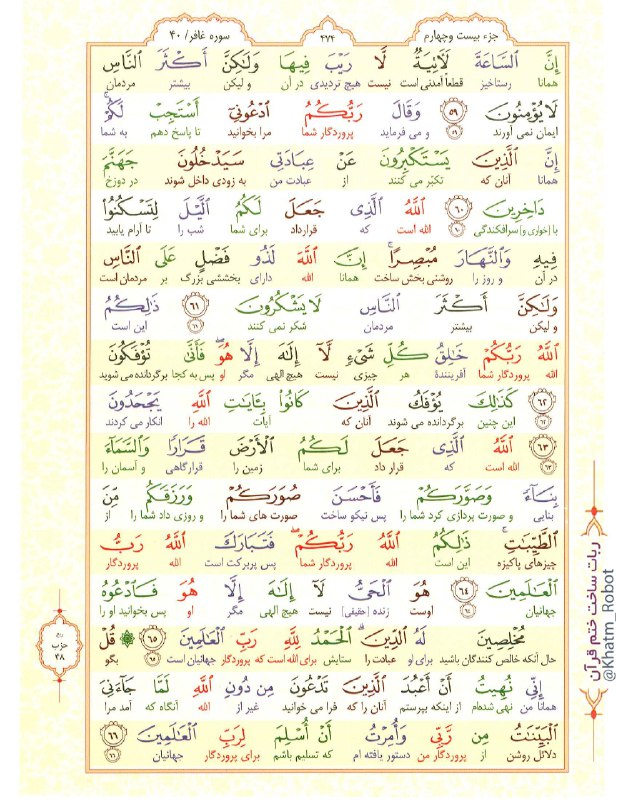 جزء بیست وچهارم
۴۷۴
سوره غافر/ ۴۰
إِنَّ ٱلسَّاعَةَ لَأٓتِيَةٌ لَّا رَيْبَ فِيهَا وَلَٰكِنَّ أَكْثَرَ ٱلنَّاسِ
همانا رستاخیز قطعاً آمدنی است نیست هیچ تردیدی در آن و لیکن بیشتر مردمان
لَا يُؤْمِنُونَ ۵۹ وَقَالَ رَبُّكُمُ ٱدْعُونِىٓ أَسْتَجِبْ لَكُمْ ۚ
ایمان نمی آورند ۵۹ و می فرماید پروردگار شما مرا بخوانید تا پاسخ دهم به شما
إِنَّ ٱلَّذِينَ يَسْتَكْبِرُونَ عَنْ عِبَادَتِى سَيَدْخُلُونَ جَهَنَّمَ
همانا آنان که تکبّر می کنند از عبادت من به زودی داخل شوند در دوزخ
دَاخِرِينَ ۶۰ ٱللَّهُ ٱلَّذِى جَعَلَ لَكُمُ ٱلَّيْلَ لِتَسْكُنُوا۟
با (خواری و) سرافکندگی ۶۰ الله است که قرارداد برای شما شب را تا آرام یابید
فِيهِ وَٱلنَّهَارَ مُبْصِرًا ۚ إِنَّ ٱللَّهَ لَذُو فَضْلٍ عَلَى ٱلنَّاسِ
در آن و روز را روشنی بخش ساخت همانا الله دارای بخششی بزرگ بر مردمان است
وَلَٰكِنَّ أَكْثَرَ ٱلنَّاسِ لَا يَشْكُرُونَ ۶۱ ذَٰلِكُمُ
و لیکن بیشتر مردمان شکر نمی کنند ۶۱ این است
ٱللَّهُ رَبُّكُمْ خَٰلِقُ كُلِّ شَىْءٍ لَّآ إِلَٰهَ إِلَّا هُوَ ۖ فَأَنَّىٰ تُؤْفَكُونَ
الله پروردگار شما آفرینندهٔ هر چیزی نیست هیچ الهی مگر او پس به کجا برگردانده می شوید
۶۲ كَذَٰلِكَ يُؤْفَكُ ٱلَّذِينَ كَانُوا۟ بِـَٔايَٰتِ ٱللَّهِ يَجْحَدُونَ
۶۲ این چنین برگردانده می شوند آنان که آیات الله را انکار می کردند
۶۳ ٱللَّهُ ٱلَّذِى جَعَلَ لَكُمُ ٱلْأَرْضَ قَرَارًا وَٱلسَّمَآءَ
۶۳ الله است که قرار داد برای شما زمین را قرارگاهی و آسمان را
بِنَآءً وَصَوَّرَكُمْ فَأَحْسَنَ صُوَرَكُمْ وَرَزَقَكُم مِّنَ
بنایی و صورت پردازی کرد شما را پس نیکو ساخت صورت های شما را و روزی داد شما را از
ٱلطَّيِّبَٰتِ ۚ ذَٰلِكُمُ ٱللَّهُ رَبُّكُمْ ۖ فَتَبَارَكَ ٱللَّهُ رَبُّ
چیزهای پاکیزه این است الله پروردگار شما پس پربرکت است الله پروردگار
ٱلْعَٰلَمِينَ ۶۴ هُوَ ٱلْحَىُّ لَآ إِلَٰهَ إِلَّا هُوَ فَٱدْعُوهُ
جهانیان ۶۴ اوست زنده (حقیقی) نیست هیچ الهی مگر او پس بخوانید او را
مُخْلِصِينَ لَهُ ٱلدِّينَ ۗ ٱلْحَمْدُ لِلَّهِ رَبِّ ٱلْعَٰلَمِينَ ۶۵ ۞ قُلْ
حال آنکه خالص کنندگان باشید برای او عبادت را ستایش برای الله است که پروردگار جهانیان است ۶۵ بگو
إِنِّى نُهِيتُ أَنْ أَعْبُدَ ٱلَّذِينَ تَدْعُونَ مِن دُونِ ٱللَّهِ لَمَّا جَآءَنِىَ
همانا من نهی شده‌ام از اینکه بپرستم آنان را که فرا می خوانید غیر از الله آنگاه که آمد مرا
ٱلْبَيِّنَٰتُ مِن رَّبِّى وَأُمِرْتُ أَنْ أُسْلِمَ لِرَبِّ ٱلْعَٰلَمِينَ ۶۶
دلائل روشن از پروردگار من دستور یافته ام که تسلیم باشم برای پروردگار جهانیان ۶۶
حزب
۴۸
ربات ساخت ختم قرآن
@Khatm_Robot